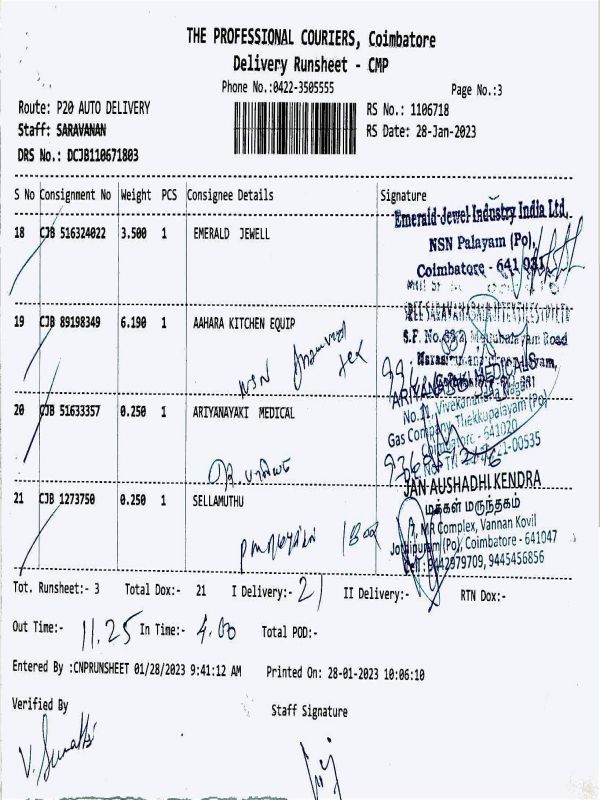 THE PROFESSIONAL COURIERS, Coimbatore
Delivery Runsheet - CMP
Phone No.:0422-3505555
Page No.:3
Route: P20 AUTO DELIVERY
RS No.: 1106718
Staff: SARAVANAN
RS Date: 28-Jan-2023
DRS No.: DCJB110671803
S No Consignment No Weight PCS Consignee Details Signature
18 CJB 516324022 3.500 1 EMERALD JEWELL
Emerald Jewel Industry India Ltd,
NSN Palayam (Po),
Coimbatore - 641 031
19 CJB 89198349 6.190 1 AAHARA KITCHEN EQUIP
S.F. No. Road
20 CJB 51633357 0.250 1 ARIYANAYAKI MEDICAL
MEDICALS
No.11, Vivekanandha Nagar
Gas Company, Thekkupalayam (Po)
Coimbatore - 641020
21 CJB 1273750 0.250 1 SELLAMUTHU
JAN AUSHADHI KENDRA
மக்கள் மருந்தகம்
MR Complex, Vannan Kovil
Jothipuram (Po), Coimbatore - 641047
Cell : 9442979709, 9445456856
Tot. Runsheet:- 3 Total Dox:- 21 I Delivery:- 21 II Delivery:- RTN Dox:-
Out Time:- 11.25 In Time:- 4.00 Total POD:-
Entered By :CNPRUNSHEET 01/28/2023 9:41:12 AM Printed On: 28-01-2023 10:06:10
Verified By
Staff Signature